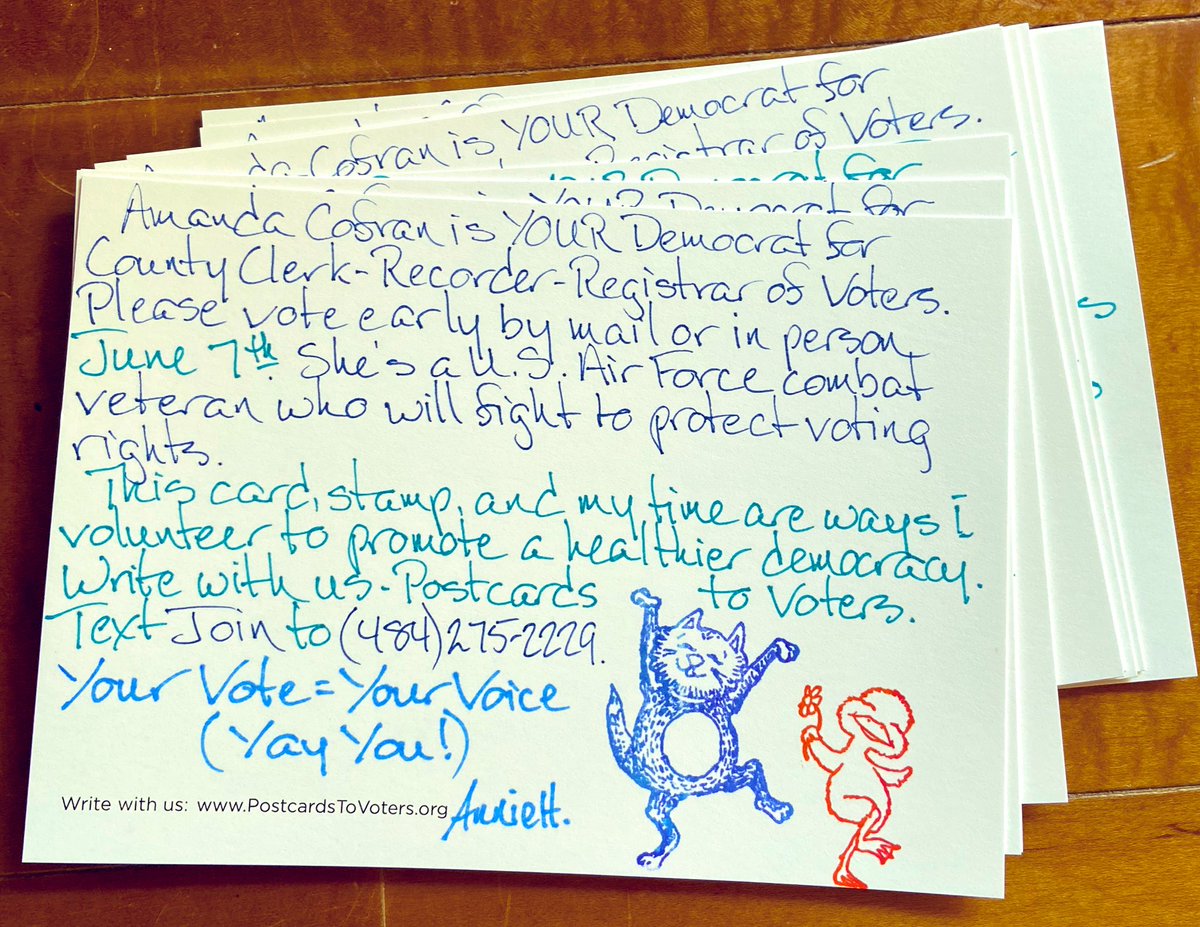 Democrat for
da Cofran is YOUR
Registrar of Voters.
Amanda Cofran is YOUR Democrat for
County Clerk-Recorder-Registrar of Voters.
Please vote early by mail or in person,
June 7th. She's a U.S. Air Force combat
veteran who will fight to protect voting
rights.
This card, stamp, and my time are ways I
volunteer to promote a healthier democracy.
Write with us - Postcards to Voters.
Text Join to (484) 275-2229.
Your Vote = Your Voice
(Yay You!)
Write with us: www.PostcardsToVoters.org AnnieH.